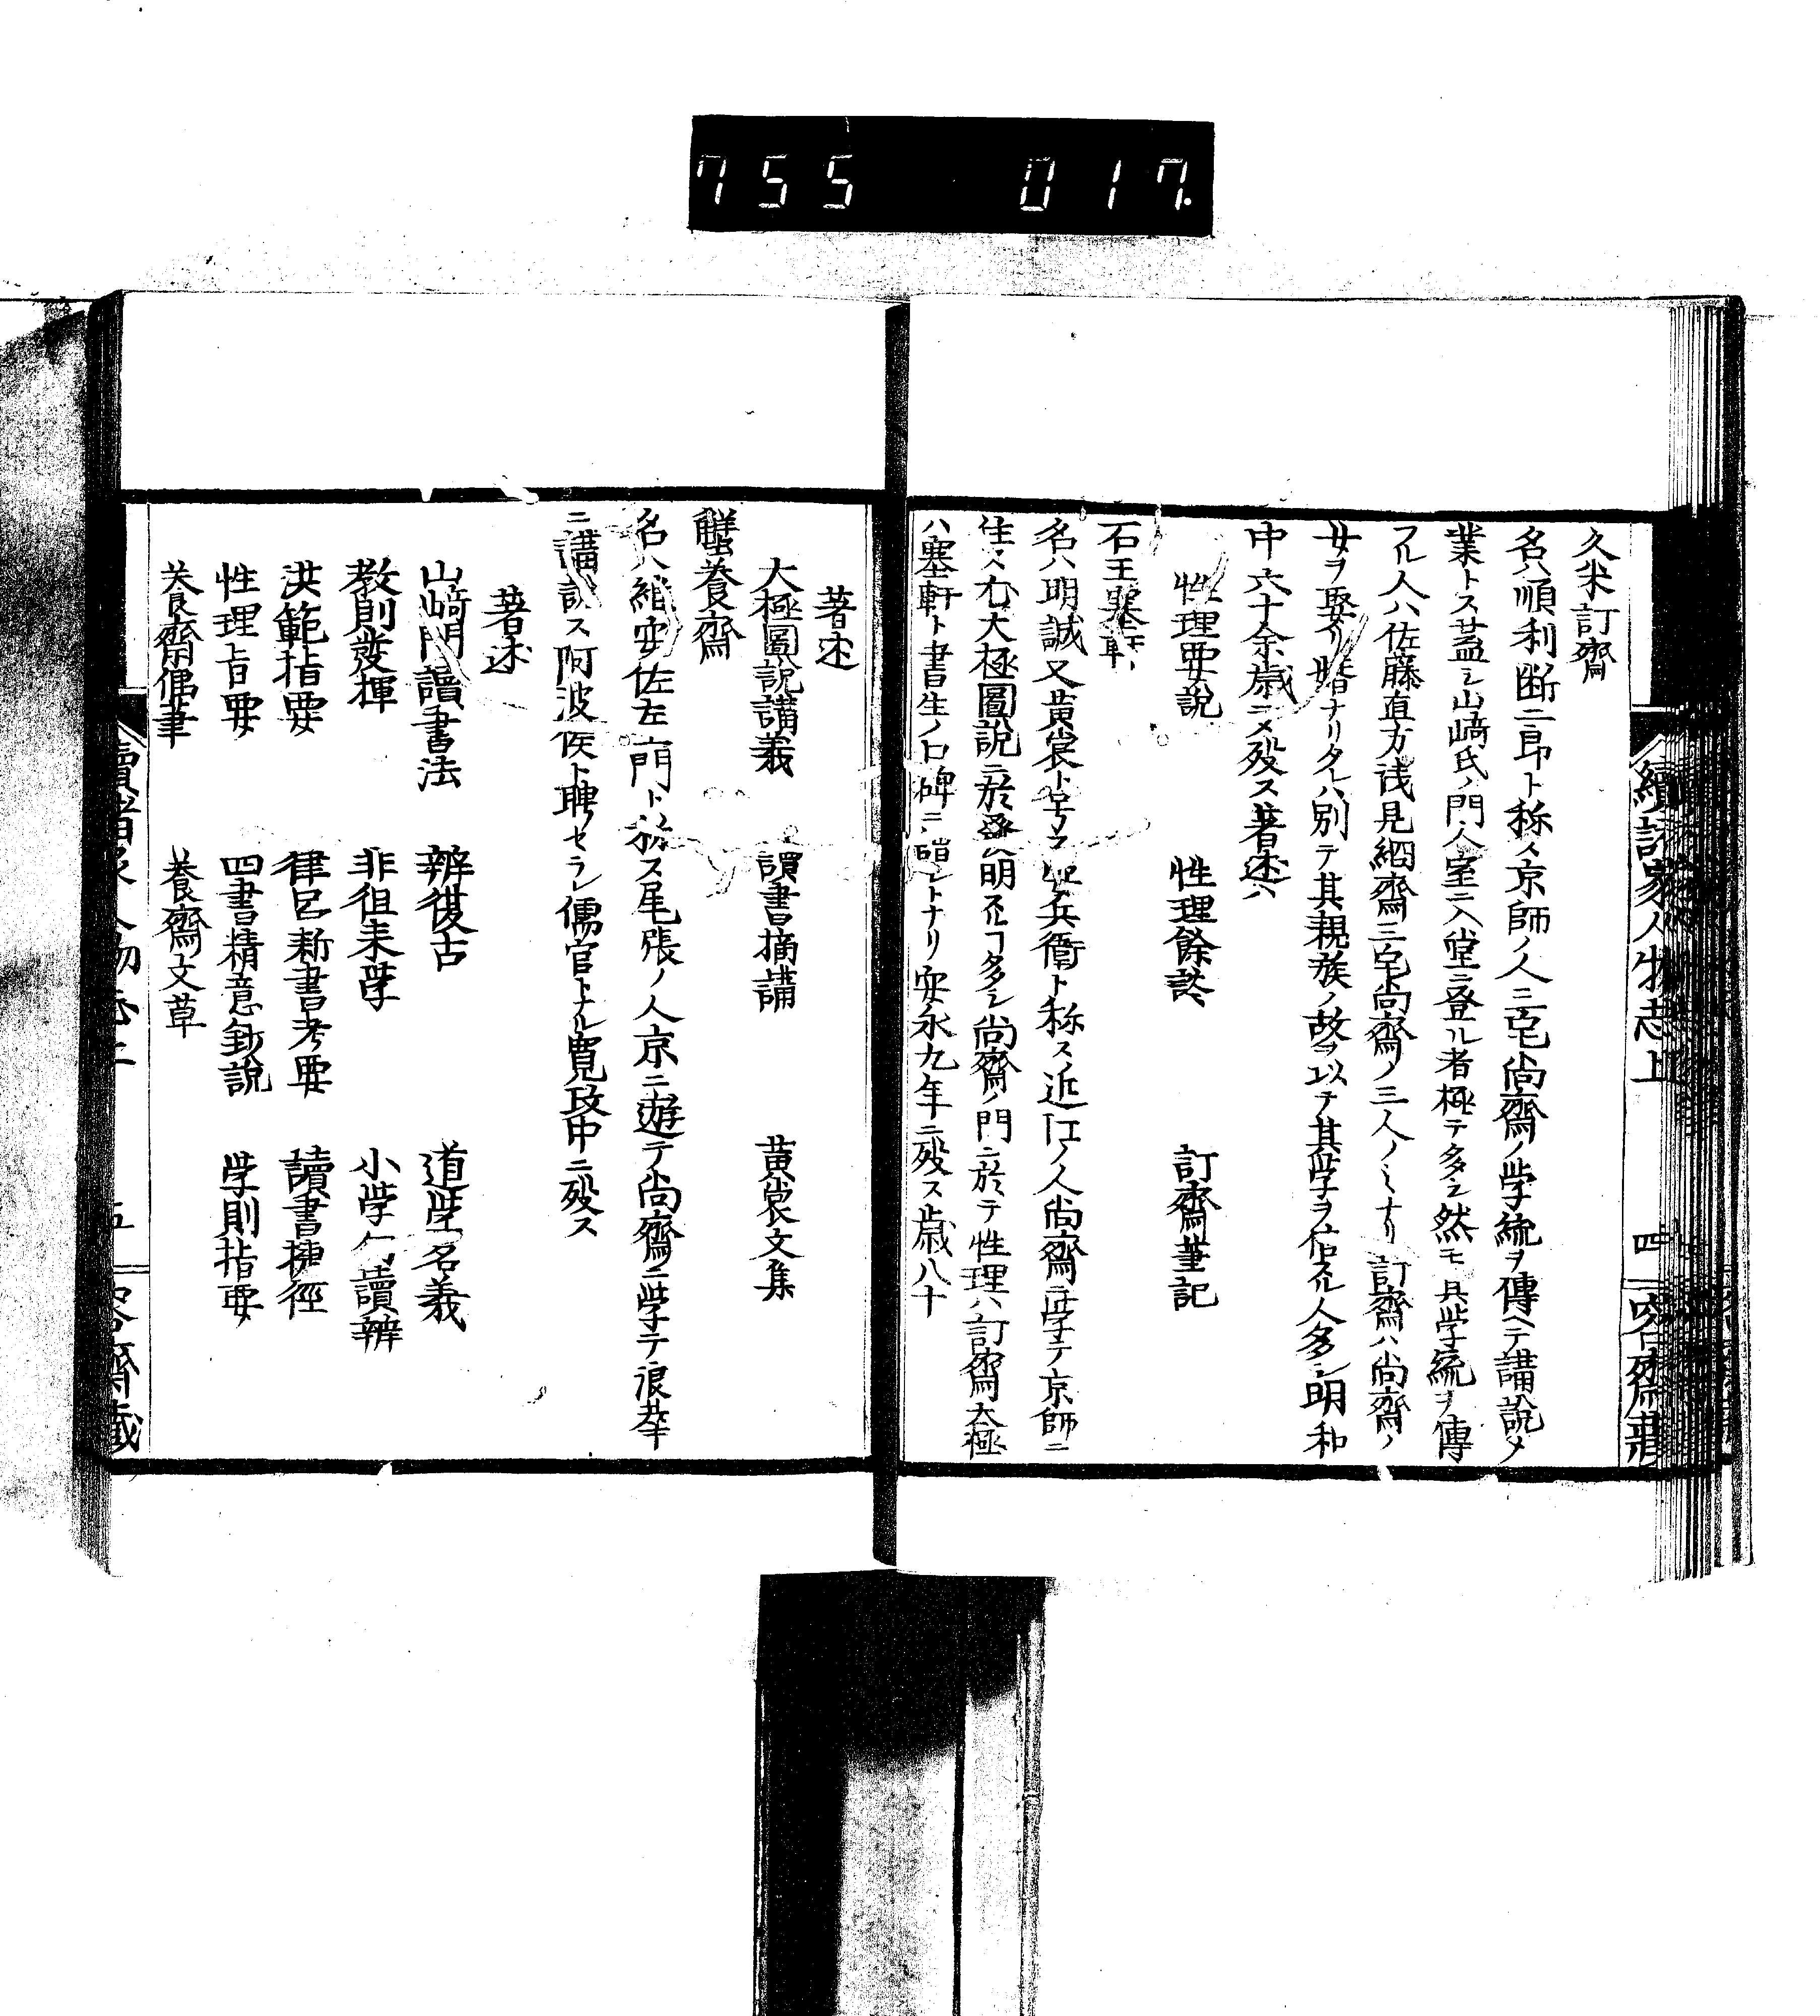 755 017.
續諸家人物志上
四
容齋藏
久米訂齋
名ハ順利断二郎ト称ス京師ノ人三宅尚齋ノ学統ヲ傳ヘテ講説メ
業トス蓋シ山﨑氏ノ門人室ニ入堂ニ登ル者極テ多シ然モ其学統ヲ傳
フル人ハ佐藤直方浅見絅齋三宅尚齋ノ三人ノミナリ訂齋ハ尚齋ノ
女ヲ娶リ婿ナリタレハ別テ其親族ノ故ヲ以テ其学ヲ信スル人多シ明和
中六十余歳ニメ殁ス著述ハ
性理要説
性理餘談
訂齋筆記
石王塞軒
名ハ明誠又黄裳ト号ス 兵衛ト称ス近江ノ人尚齋ニ学テ京師ニ
住ス尤大極圖説ニ於發明スルヿ多シ尚齋ノ門ニ於テ性理ハ訂齋大極
ハ塞軒ト書生ノ口碑ニ トナリ安永九年ニ殁ス歳八十
著述
大極圖説講義
讀書摘講
黄裳文集
蟹養齋
名ハ維安佐左衛門ト称ス尾張ノ人京ニ遊テ尚齋ニ学テ浪華
ニ講説ス阿波侯ト聘セラレ儒官トナル寛政中ニ殁ス
著述
山﨑門讀書法
辨復古
道学名義
教則發揮
非徂来学
小学句讀辨
洪範指要
律呂新書考要
讀書捷徑
性理旨要
四書精意鈔説
学則指要
養齋偶筆
養齋文草
五
容齋藏